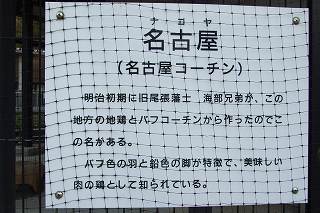 ナゴヤ
名古屋
(名古屋コーチン)
明治初期に旧尾張藩士 海部兄弟が、この
地方の地鶏とバフコーチンから作ったのでこ
の名がある。
バフ色の羽と鉛色の脚が特徴で、美味しい
肉の鶏として知られている。